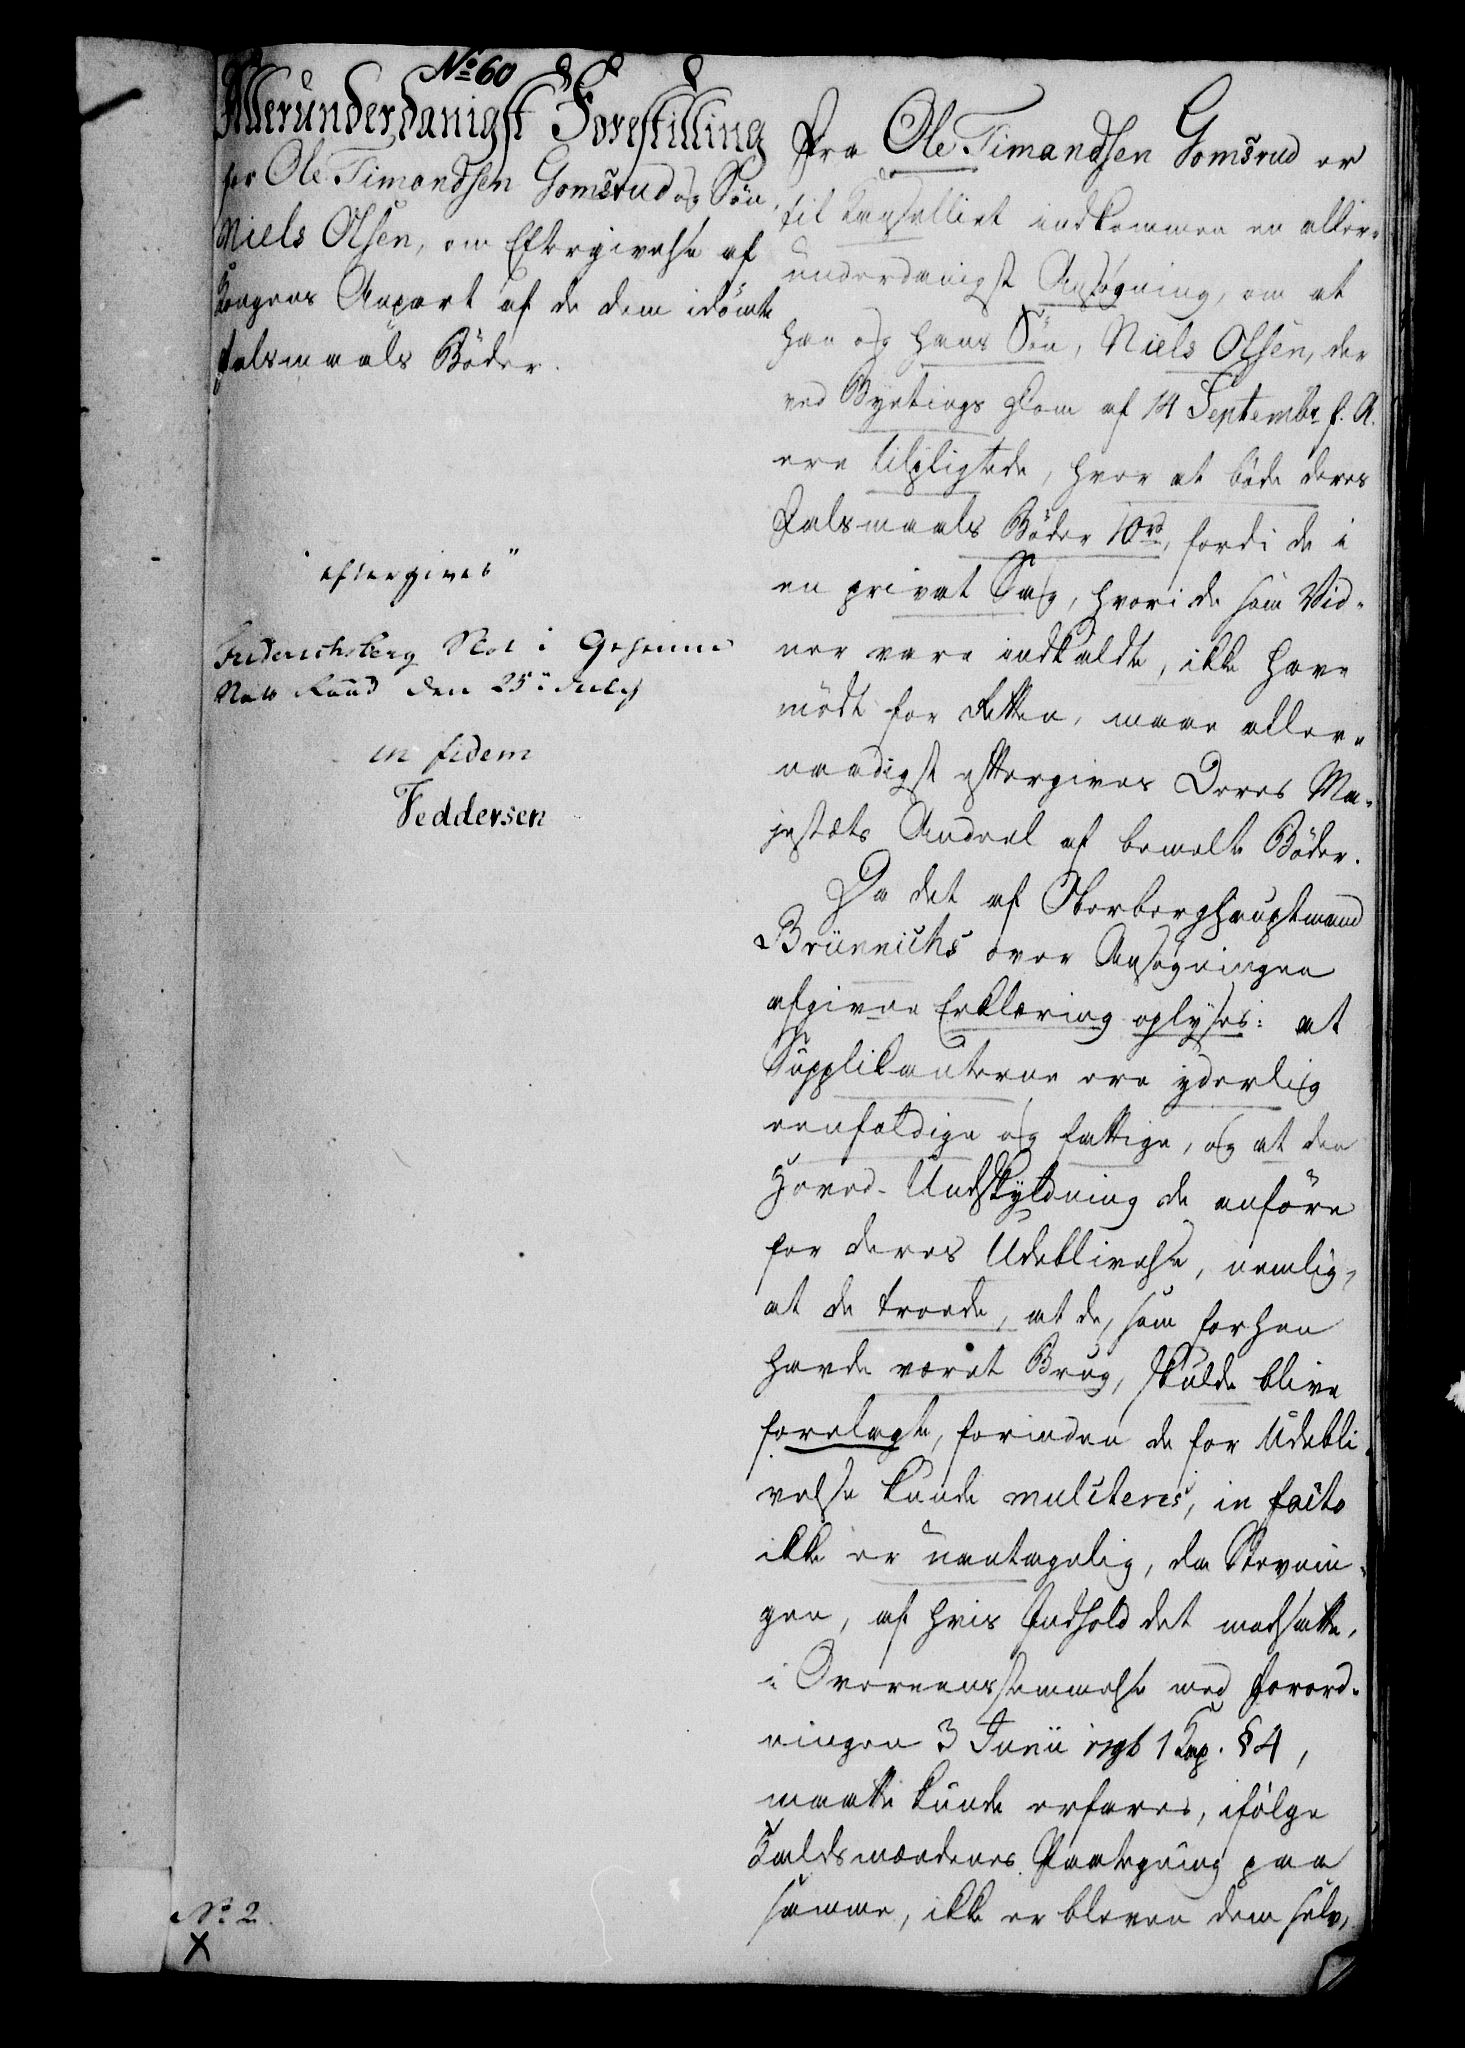 No 60
Allerunderdanigst Forestilling
for Ole Timandsen Gomsrud og Søn,
Niels Olsen, om Eftergivelse af
Kongens Anpart af de dem idömte
Falsmaals Böder.
"eftergives"
Friderichsberg Slot i Geheime
Stats Raad den 25de July
in fidem
Feddersen
No 2.
X
Fra Ole Timandsen Gomsrud er
til Cancelliet indkommen en aller-
underdanigst Ansøgning, om at
han og hans Sön, Niels Olsen, der
ved Byetings Dom af 14 Septembr f. A.
ere tilpligtede, hver at bøde deres
Falsmaals Böder 10 rd, fordi de i
en privat Sag, hvori de som Vid-
ner vare indkaldte, ikke have
mödt for Retten, maae aller-
naadigst eftergives Deres Ma-
jestæts Andeel af bemelte Böder.
Da det af Oberberghauptmand
Brünnichs over Ansøgningen
afgivne Erklæring oplyses: at
Supplikanterne ere yderlig
eenfoldige og fattige, og at den
Hoved-Undskyldning de anföre
for deres Udeblivelse, nemlig,
at de troede, at de, som forhen
havde været Brug, skulde blive
forelagte, forinden de for Udebli-
velse kunde mulcteres, in facto
ikke er uantagelig, da Stevnin-
gen, af hvis Indhold det modsatte,
i Overeensstemmelse med Forord-
ningen 3 Junii 1796 1 Kap. § 4,
maatte kunde erfares, ifølge
Kaldsmændenes Paategning paa
samme, ikke er bleven dem selv,